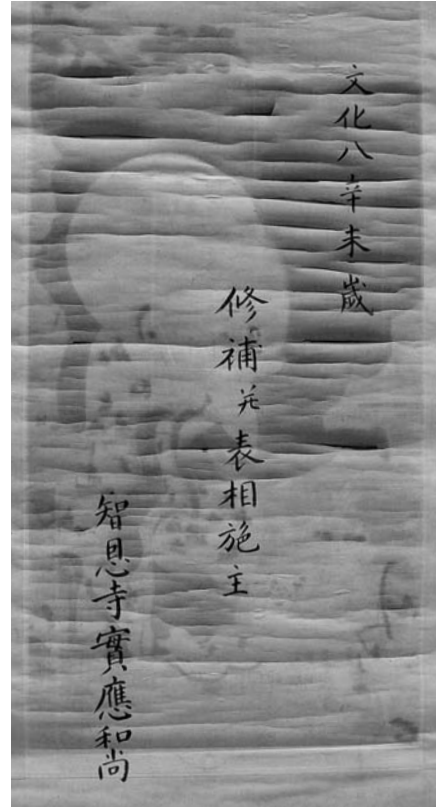 文化八辛未歳
修補并表相施主
智恩寺實應和尚